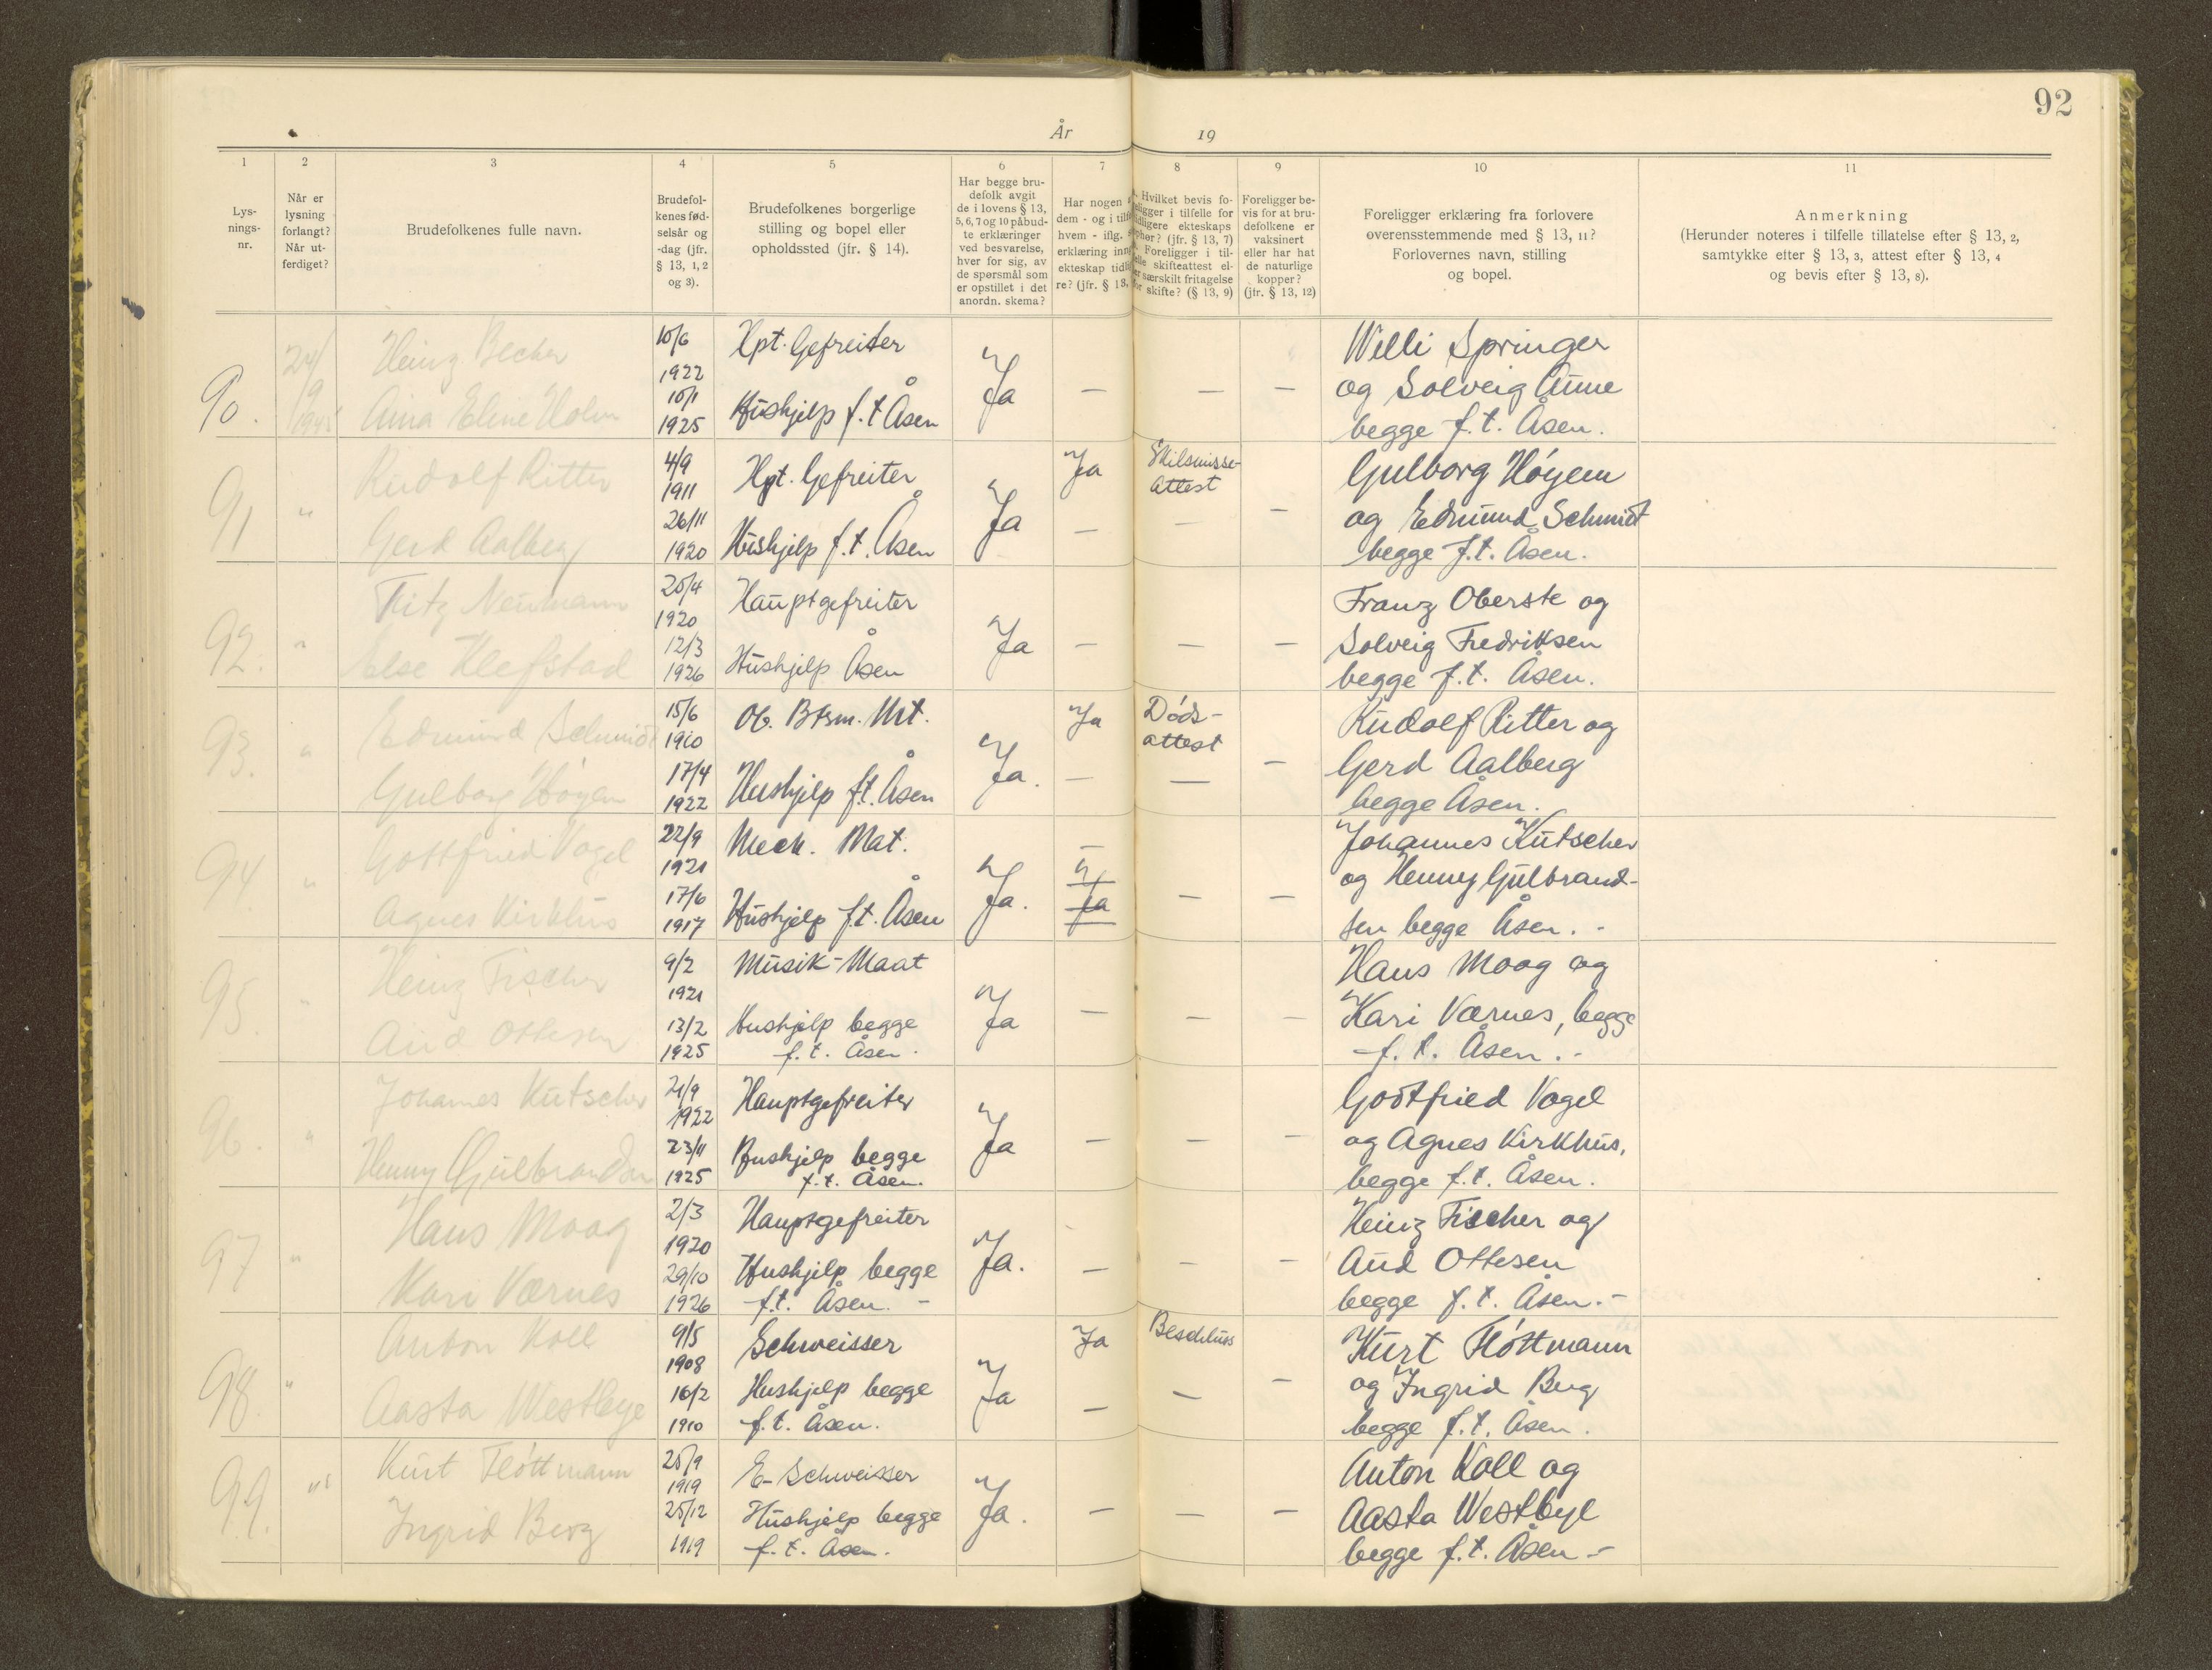 92
År 19
1 2 3 4 5 6 7 8 9 10 11
Lys-
nings-
nr.
Når er
lysning
forlangt?
Når ut-
ferdiget?
Brudefolkenes fulle navn.
Brudefol-
kenes fød-
selsår og
-dag (jfr.
§ 13, 1, 2
og 3).
Brudefolkenes borgerlige
stilling og bopel eller
opholdssted (jfr. § 14).
Har begge bru-
defolk avgit
de i lovens § 13,
5, 6, 7 og 10 påbud-
te erklæringer
ved besvarelse,
hver for sig, av
de spørsmål som
er opstillet i det
anordn. skema?
Har nogen
dem - og i tilf
hvem - iflg.
erklæring inng
ekteskap tidl
re? (jfr. § 13,
Hvilket bevis fo-
religger i tilfelle for
tidligere ekteskaps
ophør? (jfr. § 13, 7)
Foreligger i til-
felle skifteattest el-
ler særskilt fritagelse
for skifte? (§ 13, 9)
Foreligger be-
vis for at bru-
defolkene er
vaksinert
eller har hat
de naturlige
kopper?
(jfr. § 13, 12)
Foreligger erklæring fra forlovere
overensstemmende med § 13, 11?
Forlovernes navn, stilling
og bopel.
Anmerkning
(Herunder noteres i tilfelle tillatelse efter § 13, 2,
samtykke efter § 13, 3, attest efter § 13, 4
og bevis efter § 13, 8).
90.
24/
9
1945
Heinz Becher
Aina Elene Holm
10/6
1922
10/1
1925
Hpt. Gefreiter
Hushjelp f.t Åsen
Ja
—
—
—
Willi Springer
og Solveig Aune
begge f.t. Åsen.
91
"
Rudolf Ritter
Gerd Aalberg
4/9
1911
26/11
1920
Hpt. Gefreiter
Hushjelp f.t. Åsen
Ja
Ja
—
Skilsmisse-
attest
—
—
Gulborg Höyem
og Edmund Schmidt
begge f.t. Åsen.
92.
"
Fritz Neumann
Else Klefstad
20/4
1920
12/3
1926
Hauptgefreiter
Hushjelp Åsen
Ja
—
—
—
Franz Oberste og
Solveig Fredriksen
begge f.t. Åsen.
93.
"
Edmund Schmidt
Gulborg Höyem
15/6
1910
17/4
1922
Ob. Btsm. Mt.
Hushjelp f.t. Åsen
Ja.
Ja
—
Döds-
attest
—
—
Rudolf Ritter og
Gerd Aalberg
begge Åsen.
94
"
Gottfried Vogel
Agnes Kirkhus
22/9
1921
17/6
1917
Mech. Mat.
Hushjelp f.t. Åsen
Ja.
—
Ja
—
—
Johannes Kutscher
og Henny Gulbrand-
sen begge Åsen. -
95.
"
Heinz Fischer
Aud Ottesen
9/2
1921
13/2
1925
Musik-Maat
Hushjelp begge
f.t. Åsen.
Ja
—
—
—
Hans Moog og
Kari Værnes, begge
f.t. Åsen. -
96.
"
Johannes Kutscher
Henny Gulbrandsen
21/9
1922
23/11
1925
Hauptgefreiter
Hushjelp begge
f.t. Åsen.
Ja
—
—
—
Gottfried Vogel
og Agnes Kirkhus,
begge f.t. Åsen.
97
"
Hans Moog
Kari Værnes
2/3
1920
29/10
1926
Hauptgefreiter
Hushjelp begge
f.t. Åsen. -
Ja.
—
—
—
Heinz Fischer og
Aud Ottesen
begge f.t. Åsen. -
98.
"
Anton Koll
Aasta Westbye
9/5
1908
16/2
1910
Schweisser
Hushjelp begge
f.t. Åsen.
Ja
Ja
—
Beschluss
—
—
Kurt Flöttmann
og Ingrid Berg
begge f.t. Åsen.
99.
"
Kurt Flöttmann
Ingrid Berg
25/9
1919
25/12
1919
E-Schweisser
Hushjelp begge
f.t. Åsen.
Ja.
—
—
—
Anton Koll og
Aasta Westbye
begge f.t. Åsen -